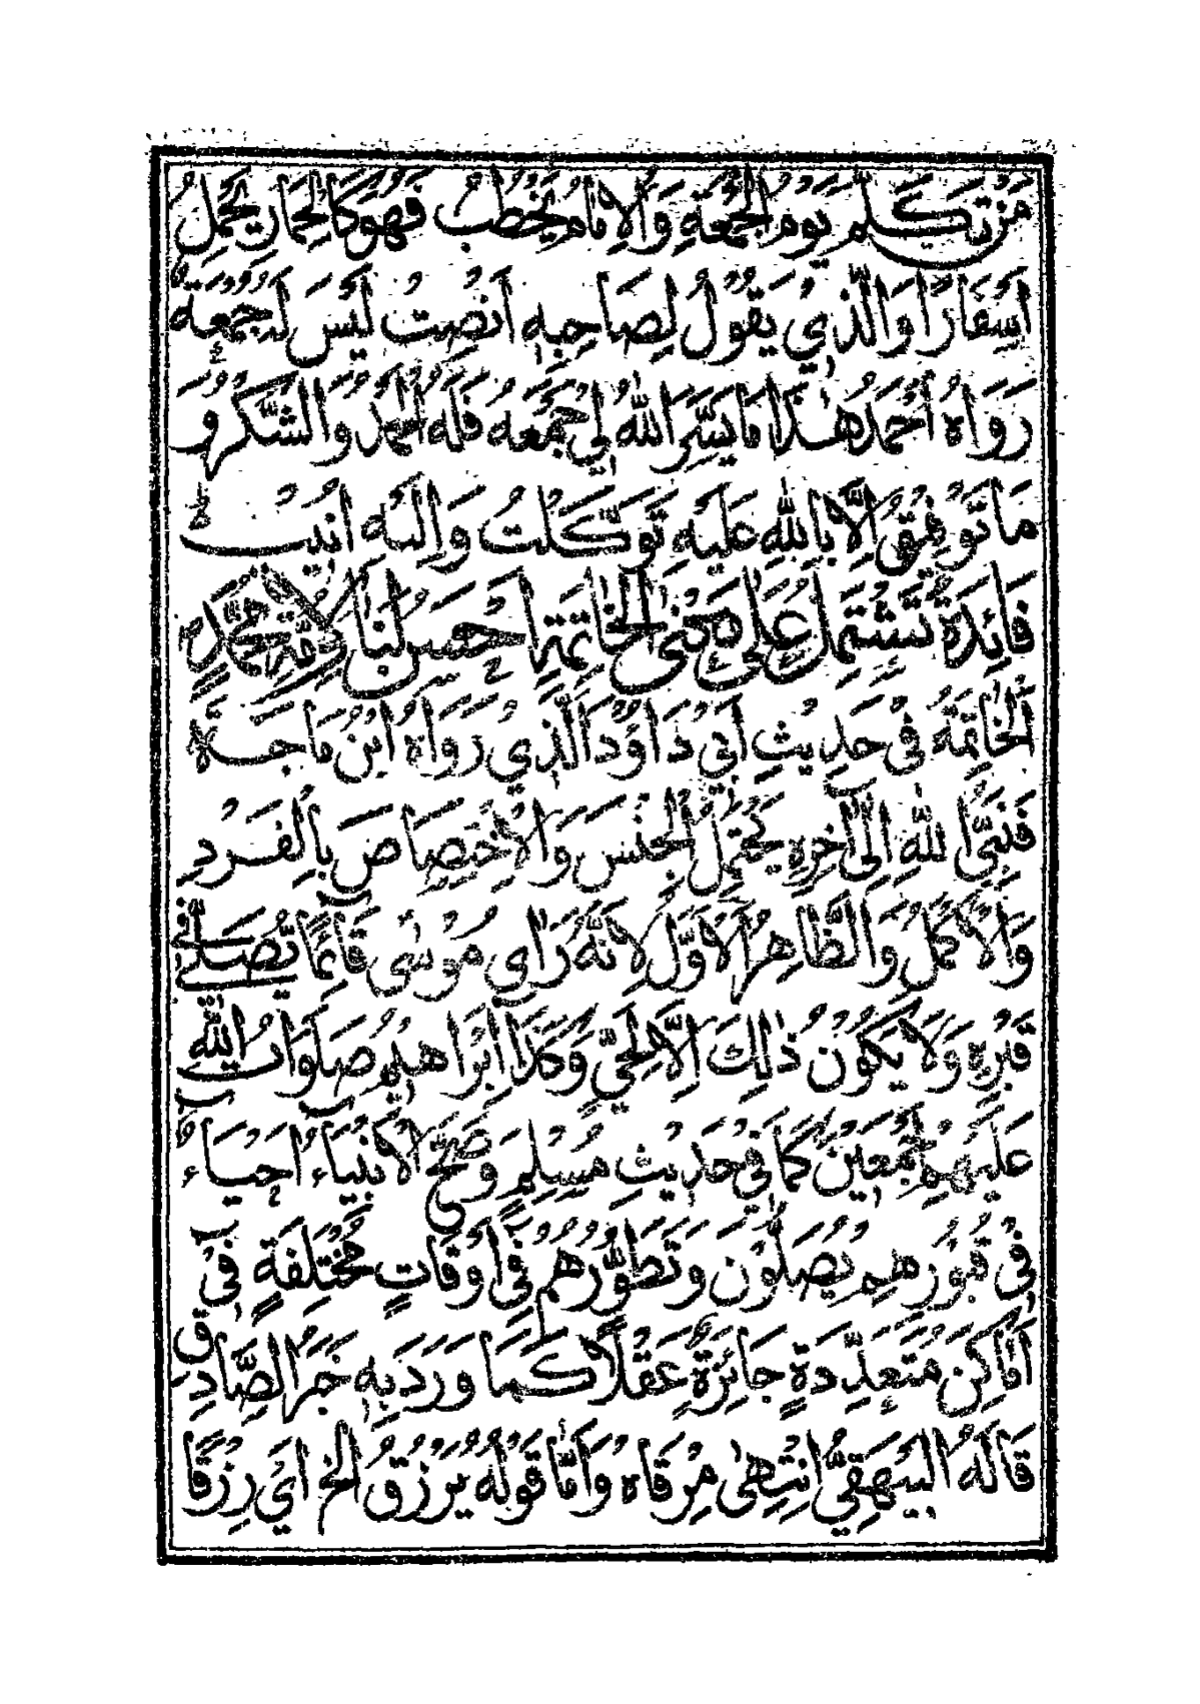 مَنْ تَكَلَّمَ يَوْمَ الْجُمُعَةِ وَالْاِمَامُ يَخْطُبُ فَهُوَ كَالْحِمَارِ يَحْمِلُ
اَسْفَارًا وَالَّذِيْ يَقُوْلُ لِصَاحِبِهٖ اَنْصِتْ لَيْسَ لَهٗ جُمُعَةٌ
رَوَاهُ اَحْمَدُ هٰذَا مَا يَسَّرَ اللّٰهُ لِيْ جَمْعَهُ فَلَهُ الْحَمْدُ وَالشُّكْرُ وَ
مَا تَوْفِيْقِيْ اِلَّا بِاللّٰهِ عَلَيْهِ تَوَكَّلْتُ وَاِلَيْهِ اُنِيْبُ
فَائِدَةٌ تَشْتَمِلُ عَلٰى مَعْنَى الْخَاتِمَةِ اَحْسَنَ لَنَا لِاُمَّةِ مُحَمَّدٍ
اَلْخَاتِمَةُ فِيْ حَدِيْثِ اَبِيْ دَاوٗدَ الَّذِيْ رَوَاهُ ابْنُ مَاجَةَ
فَنَبِيُّ اللّٰهِ اِلٰى اٰخِرِهٖ يَحْتَمِلُ الْجِنْسَ وَالْاِخْتِصَاصَ بِالْفَرْدِ
وَالْاَكْمَلُ وَالظَّاهِرُ الْاَوَّلُ لِاَنَّهُ رَاٰى مُوْسٰى قَائِمًا يُصَلِّيْ فِيْ
قَبْرِهٖ وَلَا يَكُوْنُ ذٰلِكَ اِلَّا لِحَيٍّ وَكَذَا اِبْرَاهِيْمُ صَلَوَاتُ اللّٰهِ
عَلَيْهِمْ اَجْمَعِيْنَ كَمَا فِيْ حَدِيْثِ مُسْلِمٍ وَصَحَّ الْاَنْبِيَاءُ اَحْيَاءٌ
فِيْ قُبُوْرِهِمْ يُصَلُّوْنَ وَتَطَوُّرُهُمْ فِيْ اَوْقَاتٍ مُخْتَلِفَةٍ فِيْ
اَمَاكِنَ مُتَعَدِّدَةٍ جَائِزَةٌ عَقْلًا كَمَا وَرَدَ بِهٖ خَبَرُ الصَّادِقِ
قَالَهُ الْبَيْهَقِيُّ اِنْتَهٰى مِرْقَاه وَاَمَّا قَوْلُهُ يُرْزَقُ الخ اَيْ رِزْقًا